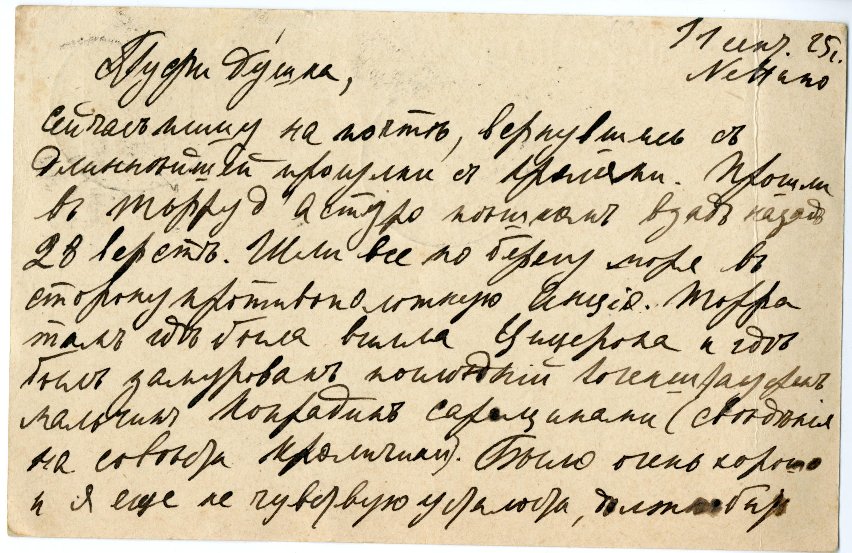 11 сент. 25г.
Nettuno
Пуси душка,
сейчасъ пишу на почтѣ, вернувшись съ
длиннѣйшей прогулки съ Кролями. Прошли
въ Торре д Астура пѣшкомъ взадъ назадъ
28 верстъ. Шли все по берегу моря въ
сторону противоположную Анціо. Торра
тамъ гдѣ была вилла Цицерона и гдѣ
былъ замурованъ послѣдній Гогенштауфенъ
мальчикъ Конрадинъ сарацинами (свѣдѣнія
на совѣсти Кроличихи). Было очень хорошо
и я еще не чувствую усталости, должно быть